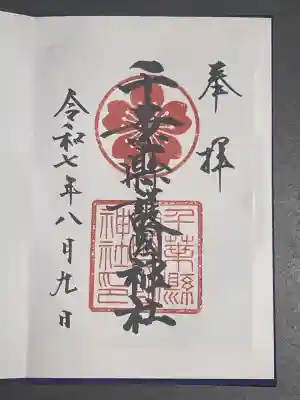 奉拝
千葉縣護國神社
千葉縣護國神社印
令和七年八月九日